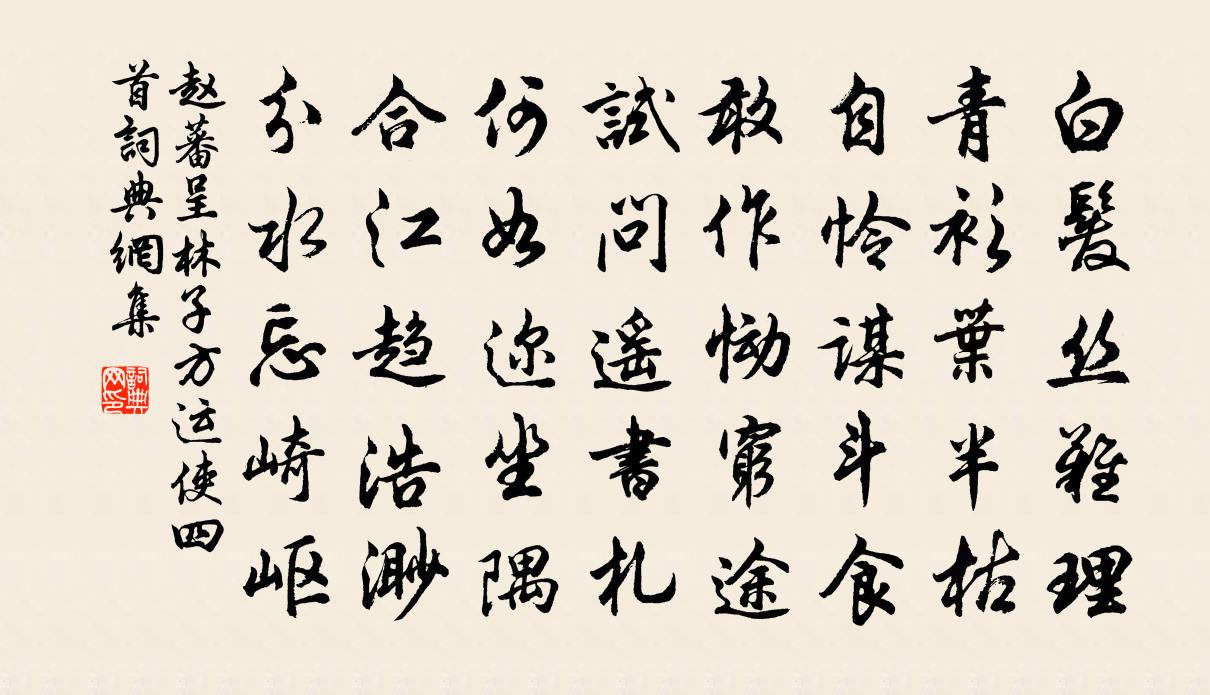 白髮丝難理
青衫葉半枯
自怜謀斗食
敢作慟窮途
試問遥書札
何如迩坐隅
合江趋浩渺
分水忘崎岖
赵蕃呈林子方运使四
首詞典網集
詞典
网印